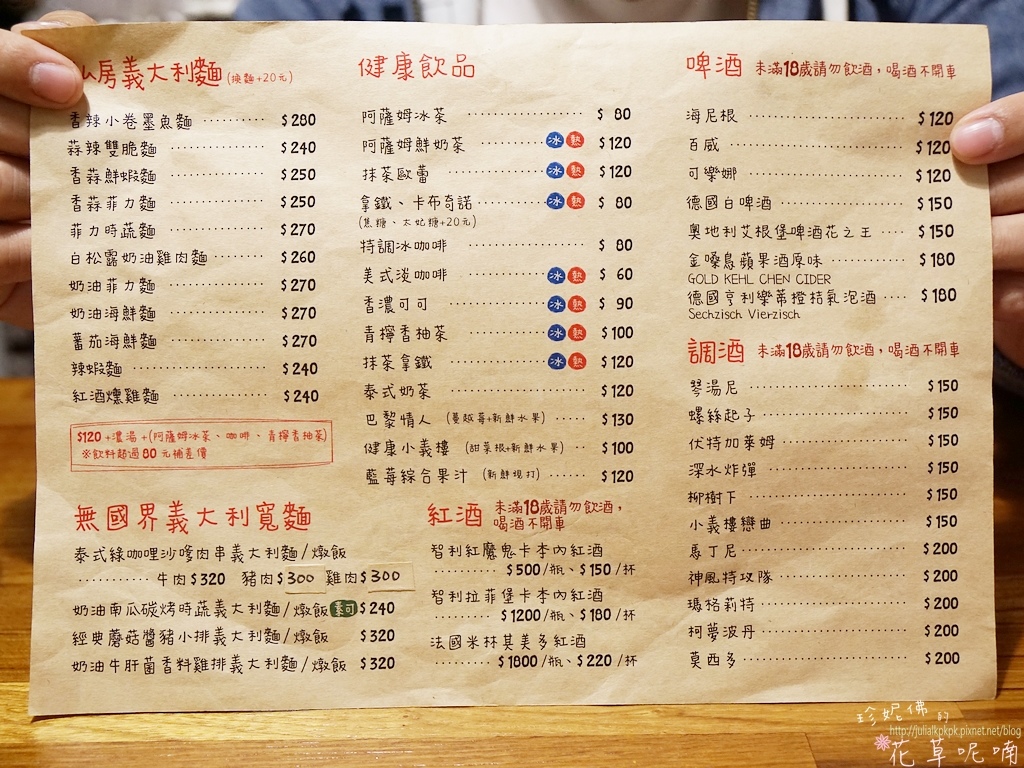 私房義大利麵 (換麵+20元)
香辣小卷墨魚麵 $280
蒜辣雙脆麵 $240
香蒜鮮蝦麵 $250
香蒜菲力麵 $250
菲力時蔬麵 $270
白松露奶油雞肉麵 $260
奶油菲力麵 $270
奶油海鮮麵 $270
蕃茄海鮮麵 $270
辣蝦麵 $240
紅酒燻雞麵 $240
$120+濃湯+(阿薩姆冰茶、咖啡、青檸香柚茶)
※飲料超過80元補差價
無國界義大利寬麵
泰式綠咖哩沙嗲肉串義大利麵/燉飯
牛肉$320 豬肉$300 雞肉$300
奶油南瓜碳烤時蔬義大利麵/燉飯 素可 $240
經典蘑菇醬豬小排義大利麵/燉飯 $320
奶油牛肝菌香料雞排義大利麵/燉飯 $320
健康飲品
阿薩姆冰茶 $80
阿薩姆鮮奶茶 冰 熱 $120
抹茶歐蕾 冰 熱 $120
拿鐵、卡布奇諾 冰 熱 $80
(焦糖、太妃糖+20元)
特調冰咖啡 $80
美式淡咖啡 冰 熱 $60
香濃可可 冰 熱 $90
青檸香柚茶 冰 熱 $100
抹茶拿鐵 冰 熱 $120
泰式奶茶 $120
巴黎情人 (蔓越莓+新鮮水果) $130
健康小義樓 (甜菜根+新鮮水果) $100
藍莓綜合果汁 (新鮮現打) $120
紅酒 未滿18歲請勿飲酒,
喝酒不開車
智利紅魔鬼卡本內紅酒
$500/瓶、$150/杯
智利拉菲堡卡本內紅酒
$1200/瓶、$180/杯
法國米林其美多紅酒
$1800/瓶、$220/杯
啤酒 未滿18歲請勿飲酒,喝酒不開車
海尼根 $120
百威 $120
可樂娜 $120
德國白啤酒 $150
奧地利艾根堡啤酒花之王 $150
金嗓息蘋果酒原味 $180
GOLD KEHL CHEN CIDER
德國亨利樂蒂橙桔氣泡酒 $180
Sechzisch Vierzisch
調酒 未滿18歲請勿飲酒,喝酒不開車
琴湯尼 $150
螺絲起子 $150
伏特加萊姆 $150
深水炸彈 $150
柳樹下 $150
小義樓戀曲 $150
馬丁尼 $200
神風特攻隊 $200
瑪格莉特 $200
柯夢波丹 $200
莫西多 $200
珍妮佛的
http://julialkpkpk.pixnet.net/blog
花草呢喃